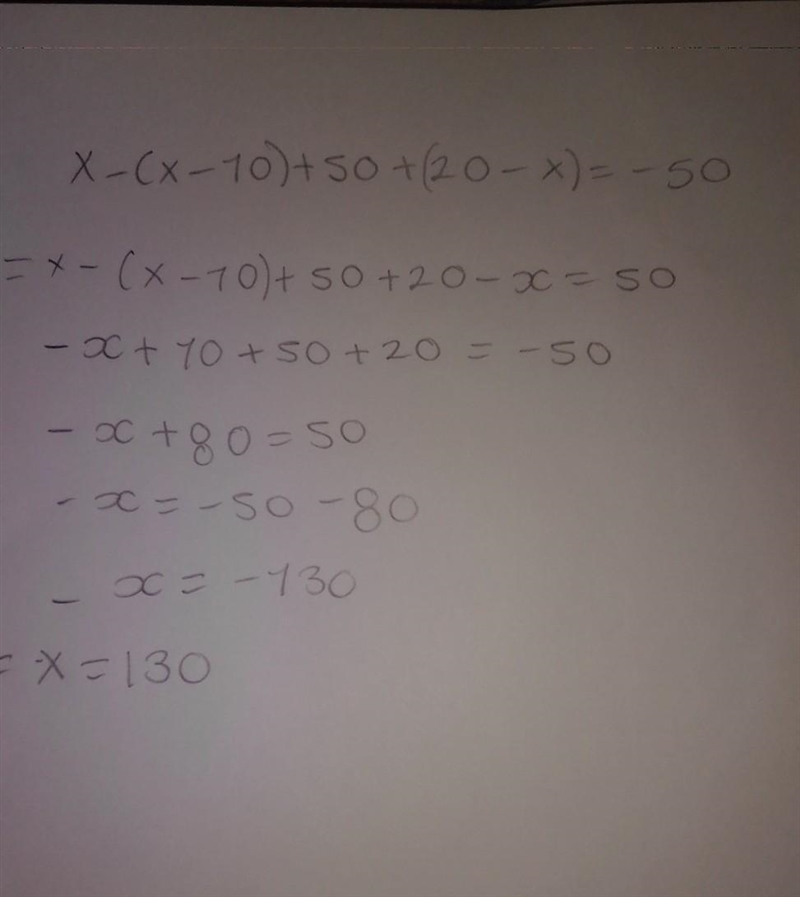 x-(x-10)+50+(20-x)=-50
=x-(x-10)+50+20-x=50
-x+10+50+20=-50
-x+80=50
-x=-50-80
-x=-130
=x=130